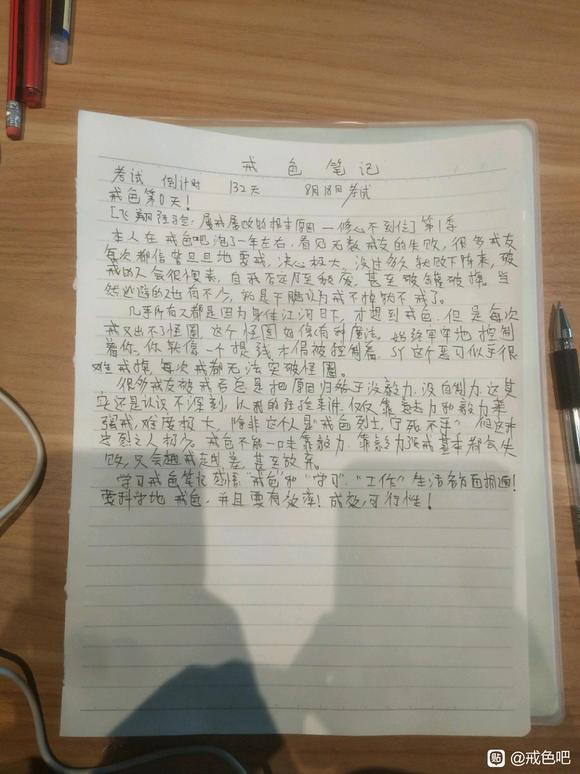 戒色笔记
考试 倒计时 132天 8月18日考试
戒色第0天!
[飞翔经验:屡戒屡败的根本原因—修心不到位] 第1季
本人在戒色吧泡了一年左右,看见无数戒友的失败,很多戒友
每次都信誓旦旦地要戒,决心极大,没过多久就败下阵来,破
戒的人会很懊素,自我否定乃至颓废,甚至破罐破摔。当
然逃避的也有不少,就是干脆认为戒不掉就不戒了。
几乎所有人都是因为身体江河日下,才想到戒色,但是每次
戒又出不了怪圈,这个怪圈好像有种魔法,始终牢牢地控制
着你,你就像一个提线木偶被控制着,这个是可似乎很
难戒掉,每次戒都无法突破怪圈。
很多戒友破戒后总是把原因归结于没毅力,没自制力,这其
实还是认识不深刻,以我的经验来讲,仅仅靠意志力和毅力来
强戒,难度极大,除非这个人是"戒色烈士,宁死不手"但这种
定到之人极少。戒色不能一味靠毅力,靠毅力强戒基本都会失
败,只会越戒越差,甚至放弃。
学习戒色笔记 "戒色"和"学习"、"工作"生活多方面
要科学地戒色,并且要有效率!成效,可行性!
贴 @戒色吧